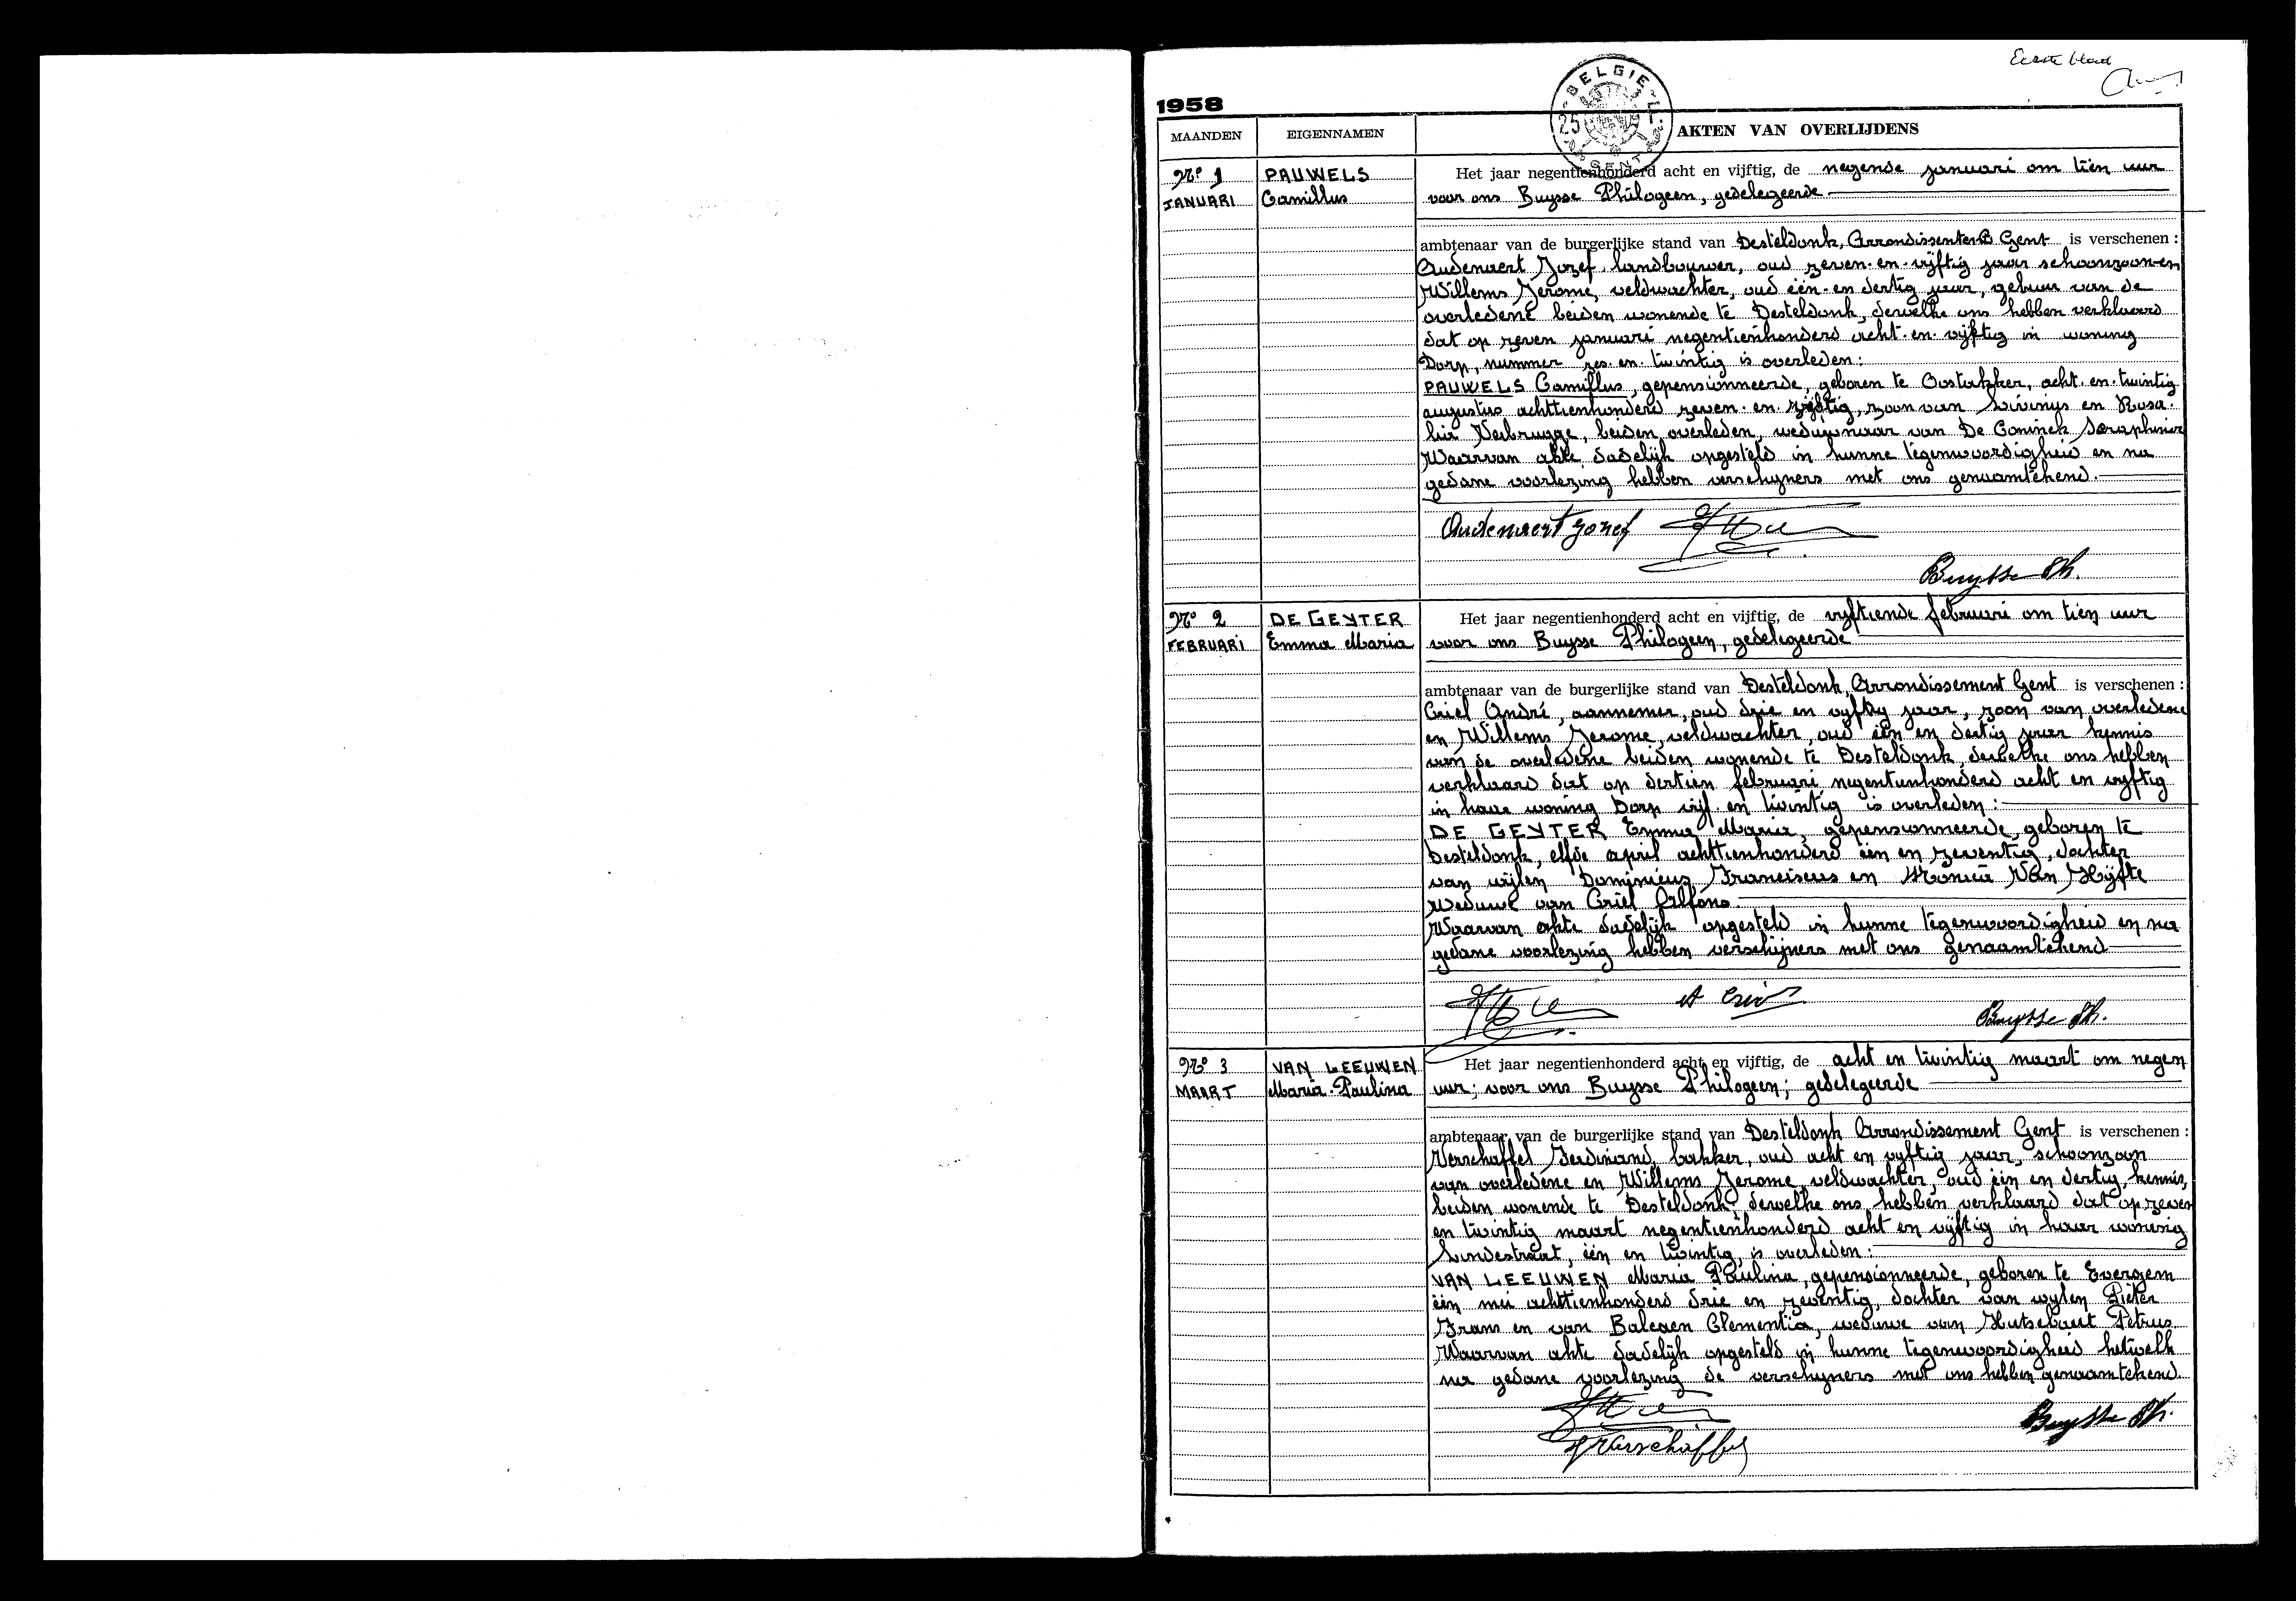 Eerste blad
1958
BELGIE
25
GENT
MAANDEN
EIGENNAMEN
AKTEN VAN OVERLIJDENS
Nº 1
JANUARI
PAUWELS
Camillus
Het jaar negentienhonderd acht en vijftig, de negende januari om tien uur
voor ons Buysse Philogeen, gedelegeerde
ambtenaar van de burgerlijke stand van Desteldonk, Gent is verschenen :
Oudenaert Jozef, landbouwer, oud zeven-en-vijftig jaar schoonzoon en
Willems Jerome, veldwachter, oud één-en dertig jaar, gebuur van de
overledene beiden wonende te Desteldonk, dewelke ons hebben verklaard
dat op zeven januari negentienhonderd acht-en-vijftig in woning
Dorp, nummer zes-en-twintig is overleden :
PAUWELS Camillus, gepensionneerde, geboren te Oostakker, acht-en-twintig
augustus achttienhonderd zeven-en- zoon van Livinus en Rosa-
lia Verbrugge, beiden overleden, weduwnaar van De Coninck Seraphine
Waarvan akte dadelijk opgesteld in hunne tegenwoordigheid en na
gedane voorlezing hebben verschijners met ons genaamtekend.
Oudenaert Jozef
Buysse Ph.
Nº 2
FEBRUARI
DE GEYTER
Emma Maria
Het jaar negentienhonderd acht en vijftig, de vyftiende februari om tien uur
voor ons Buysse Philogeen, gedelegeerde
ambtenaar van de burgerlijke stand van Desteldonk, Arrondissement Gent is verschenen :
Criel André, aannemer, oud drie en vyftig jaar, zoon van overledene
en Willems Jerome, veldwachter, oud één en dertig jaar kennis
van de overledene beiden wonende te Desteldonk, dewelke ons hebben
verklaard dat op dertien februari negentienhonderd acht en vyftig
in hare woning Dorp vijf en twintig is overleden :
DE GEYTER Emma Maria, gepensionneerde, geboren te
Desteldonk, elfde april achttienhonderd één en zeventig, dochter
van wijlen Dominicus Franciscus en Monica Van Hijfte
Weduwe van Criel Alfons.
Waarvan akte dadelijk opgesteld in hunne tegenwoordigheid en na
gedane voorlezing hebben verschijners met ons genaamtekend
A Criel
Buysse Ph.
Nº 3
MAART
VAN LEEUWEN
Maria-Paulina
Het jaar negentienhonderd acht en vijftig, de acht en twintig maart om negen
uur; voor ons Buysse Philogeen; gedelegeerde
ambtenaar van de burgerlijke stand van Desteldonk Arrondissement Gent is verschenen :
Verschaffel Ferdinand, bakker, oud acht en vyftig jaar, schoonzoon
van overledene en Willems Jerome, veldwachter, oud één en dertig, kennis,
beiden wonende te Desteldonk dewelke ons hebben verklaard dat op zeven
en twintig maart negentienhonderd acht en vijftig in haar woning
Lindestraat, één en twintig, is overleden :
VAN LEEUWEN Maria Paulina, gepensionneerde, geboren te Evergem
één mei achttienhonderd drie en zeventig, dochter van wylen Pieter
Frans en van Balcaen Clementia, weduwe van Hutsebaut Petrus.
Waarvan akte dadelijk opgesteld in hunne tegenwoordigheid hetwelk
na gedane voorlezing de verschijners met ons hebben genaamtekend.
Buysse Ph.
F Verschaffel